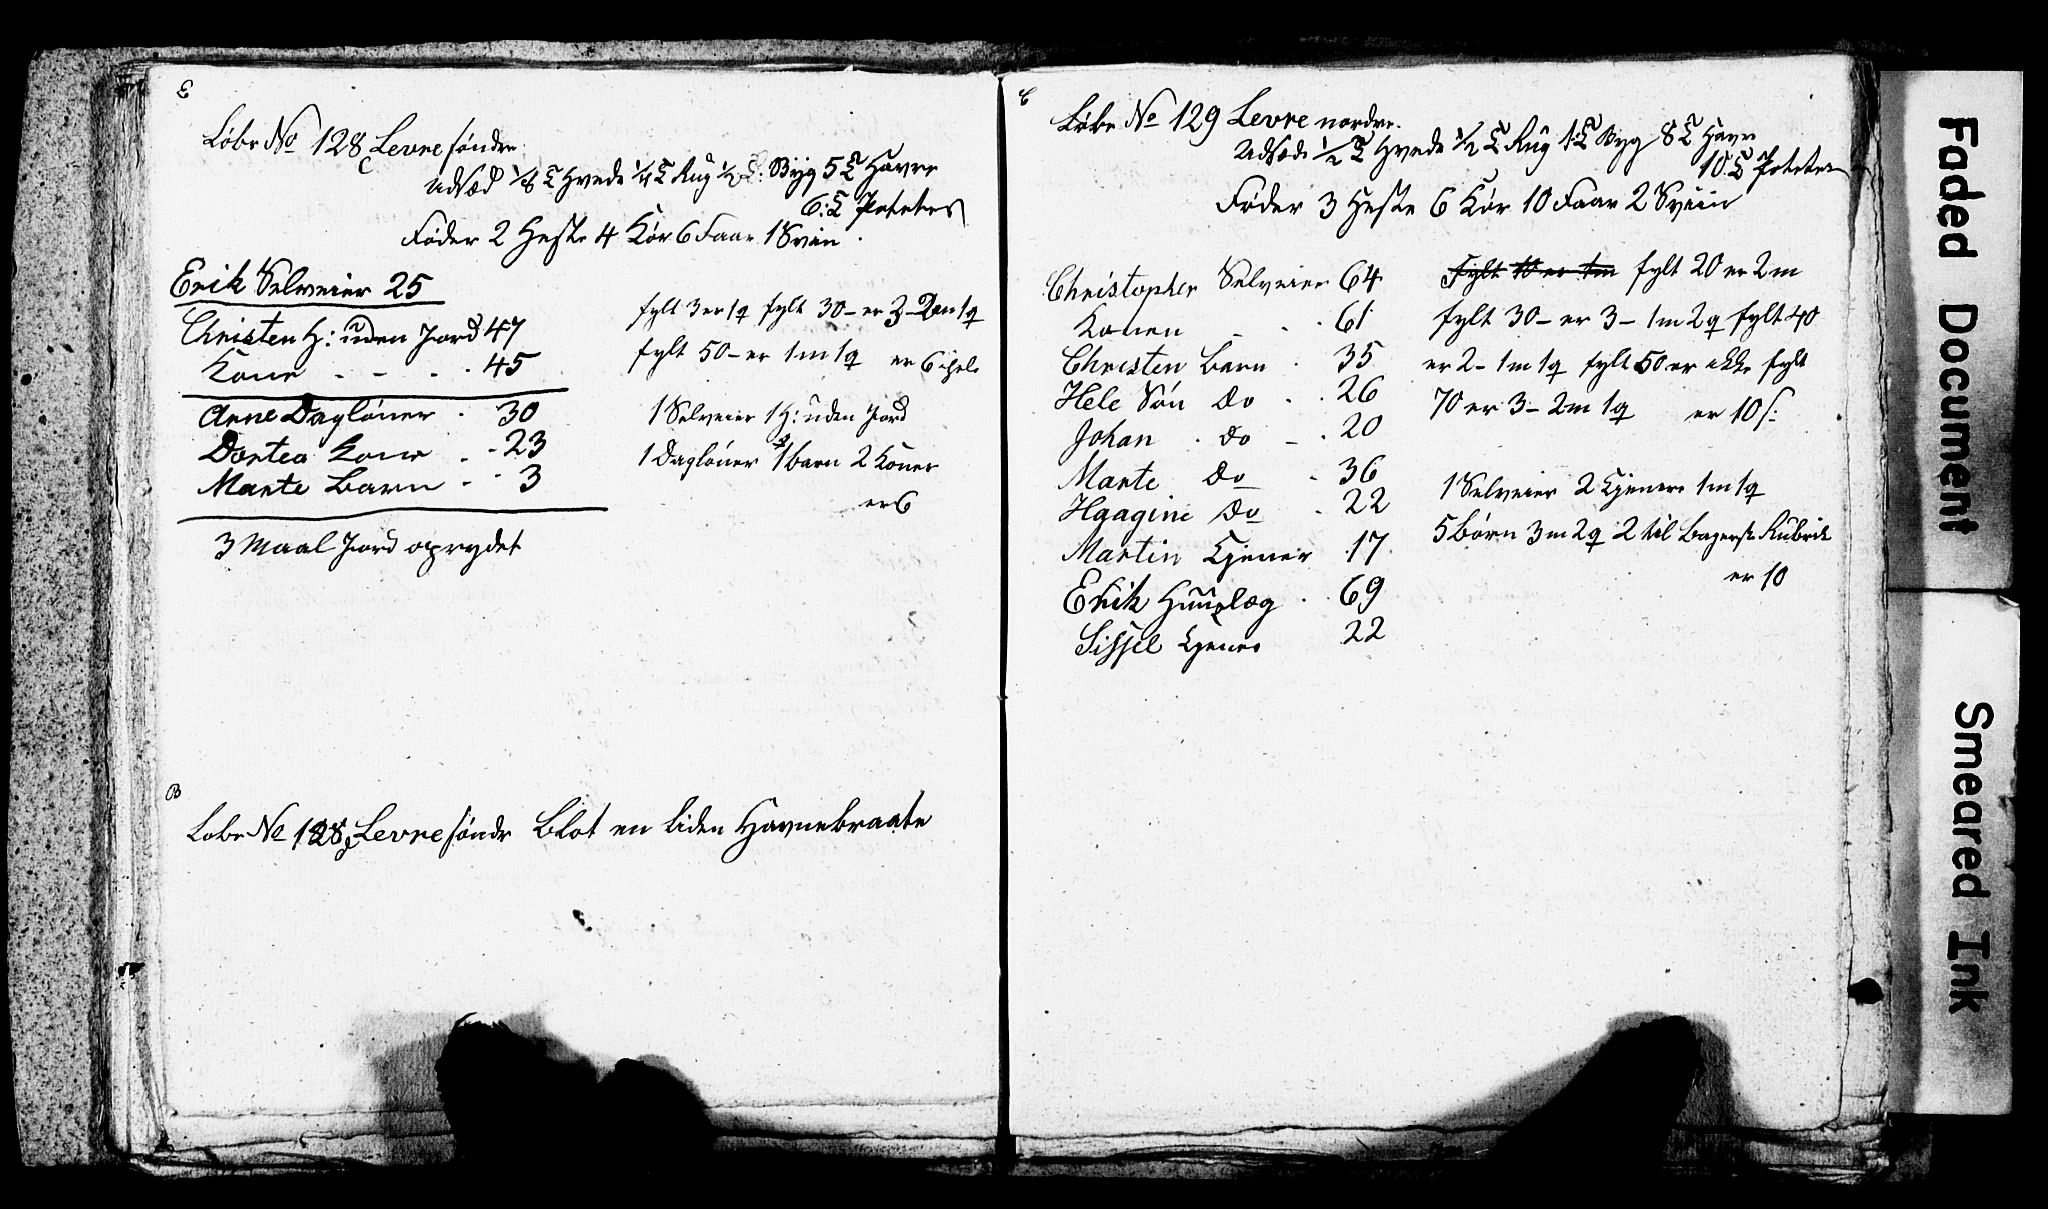 E
Løbe No 128 Levre søndre
c
Udsæd 1/8 T Hvede 1/4 T Rug 1/2 T: Byg 5 T Havre
6: T Poteter
Føder 2 Heste 4 Kør 6 Faar 1 Sviin.
Erik Selveier 25
Christen H: uden Jord 47
Kone - - . . 45
Anne Dagløner . 30
Dortea Kone . - 23
Marte Barn - - 3
3 Maal Jord oprydet
fylt 3 er 1q fylt 30 - er 3 - 2m 1q
fylt 50 - er 1m 1q er 6 ihele
1 Selveier 1 H: uden Jord
1 Dagløner 1 barn 2 Koner
er 6
B
Løbe No 128 Levre søndr Blot en liden Havnebraate
E
Løbe No 129 Levre nordre.
Udsæd 1/2 T Hvede 1/2 T Rug 1 T Byg 8 T Havre
10 T Poteter
Føder 3 Heste 6 Kør 10 Faar 2 Sviin
Christopher Selveier 64
Konen - . . 61
Christen Barn . 35
Hele Søn do . . 26
Johan . do - . 20
Marte do . 36
Haagine do . 22
Martin Tjener . 17
Erik Huuslæg . 69
Sissel Tjener 22
Fylt 10 er 1m fylt 20 er 2m
fylt 30 - er 3 - 1m 2q fylt 40
er 2 - 1m 1q fylt 50 er ikke fylt
70 er 3 - 2m 1q er 10 s:
1 Selveier 2 Tjenere 1m 1q
5 Børn 3m 2q 2 til Bagerste Rubrik
er 10
Faded Document
Smeared Ink